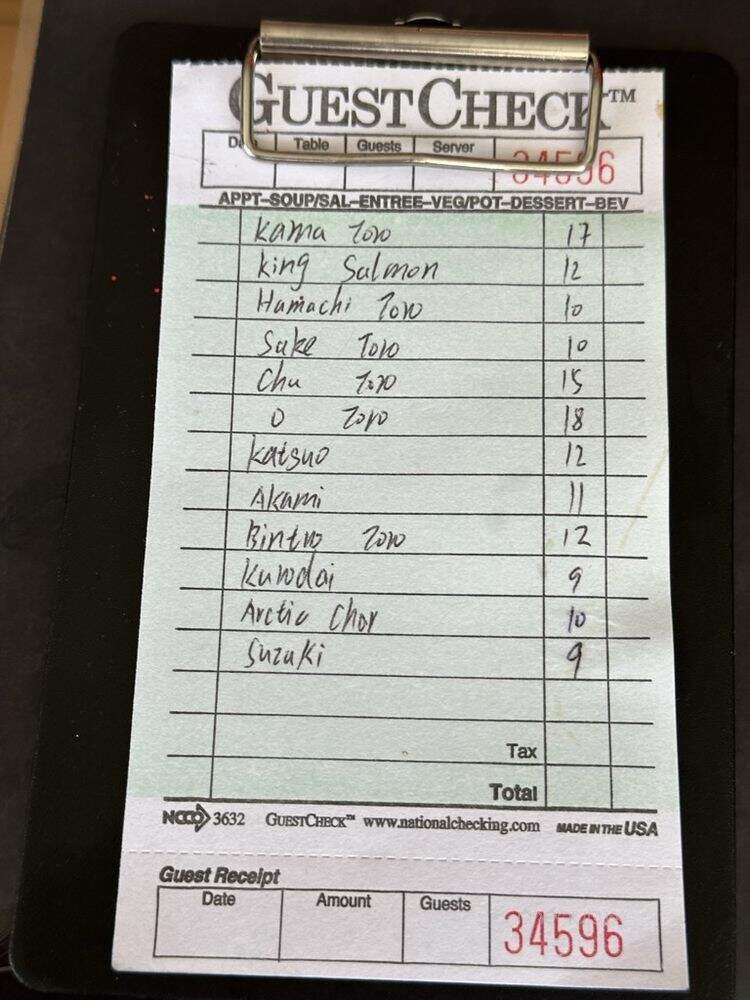 GUESTCHECK™
Date Table Guests Server
34596
APPT–SOUP/SAL–ENTREE–VEG/POT–DESSERT–BEV
Kama Toro 17
King Salmon 12
Hamachi Toro 10
Sake Toro 10
Chu Toro 15
O Toro 18
Katsuo 12
Akami 11
Binto Toro 12
Kurodai 9
Arctic Char 10
Suzuki 9
Tax
Total
NCCO 3632 GUESTCHECK™ www.nationalchecking.com MADE IN THE USA
Guest Receipt
Date Amount Guests
34596